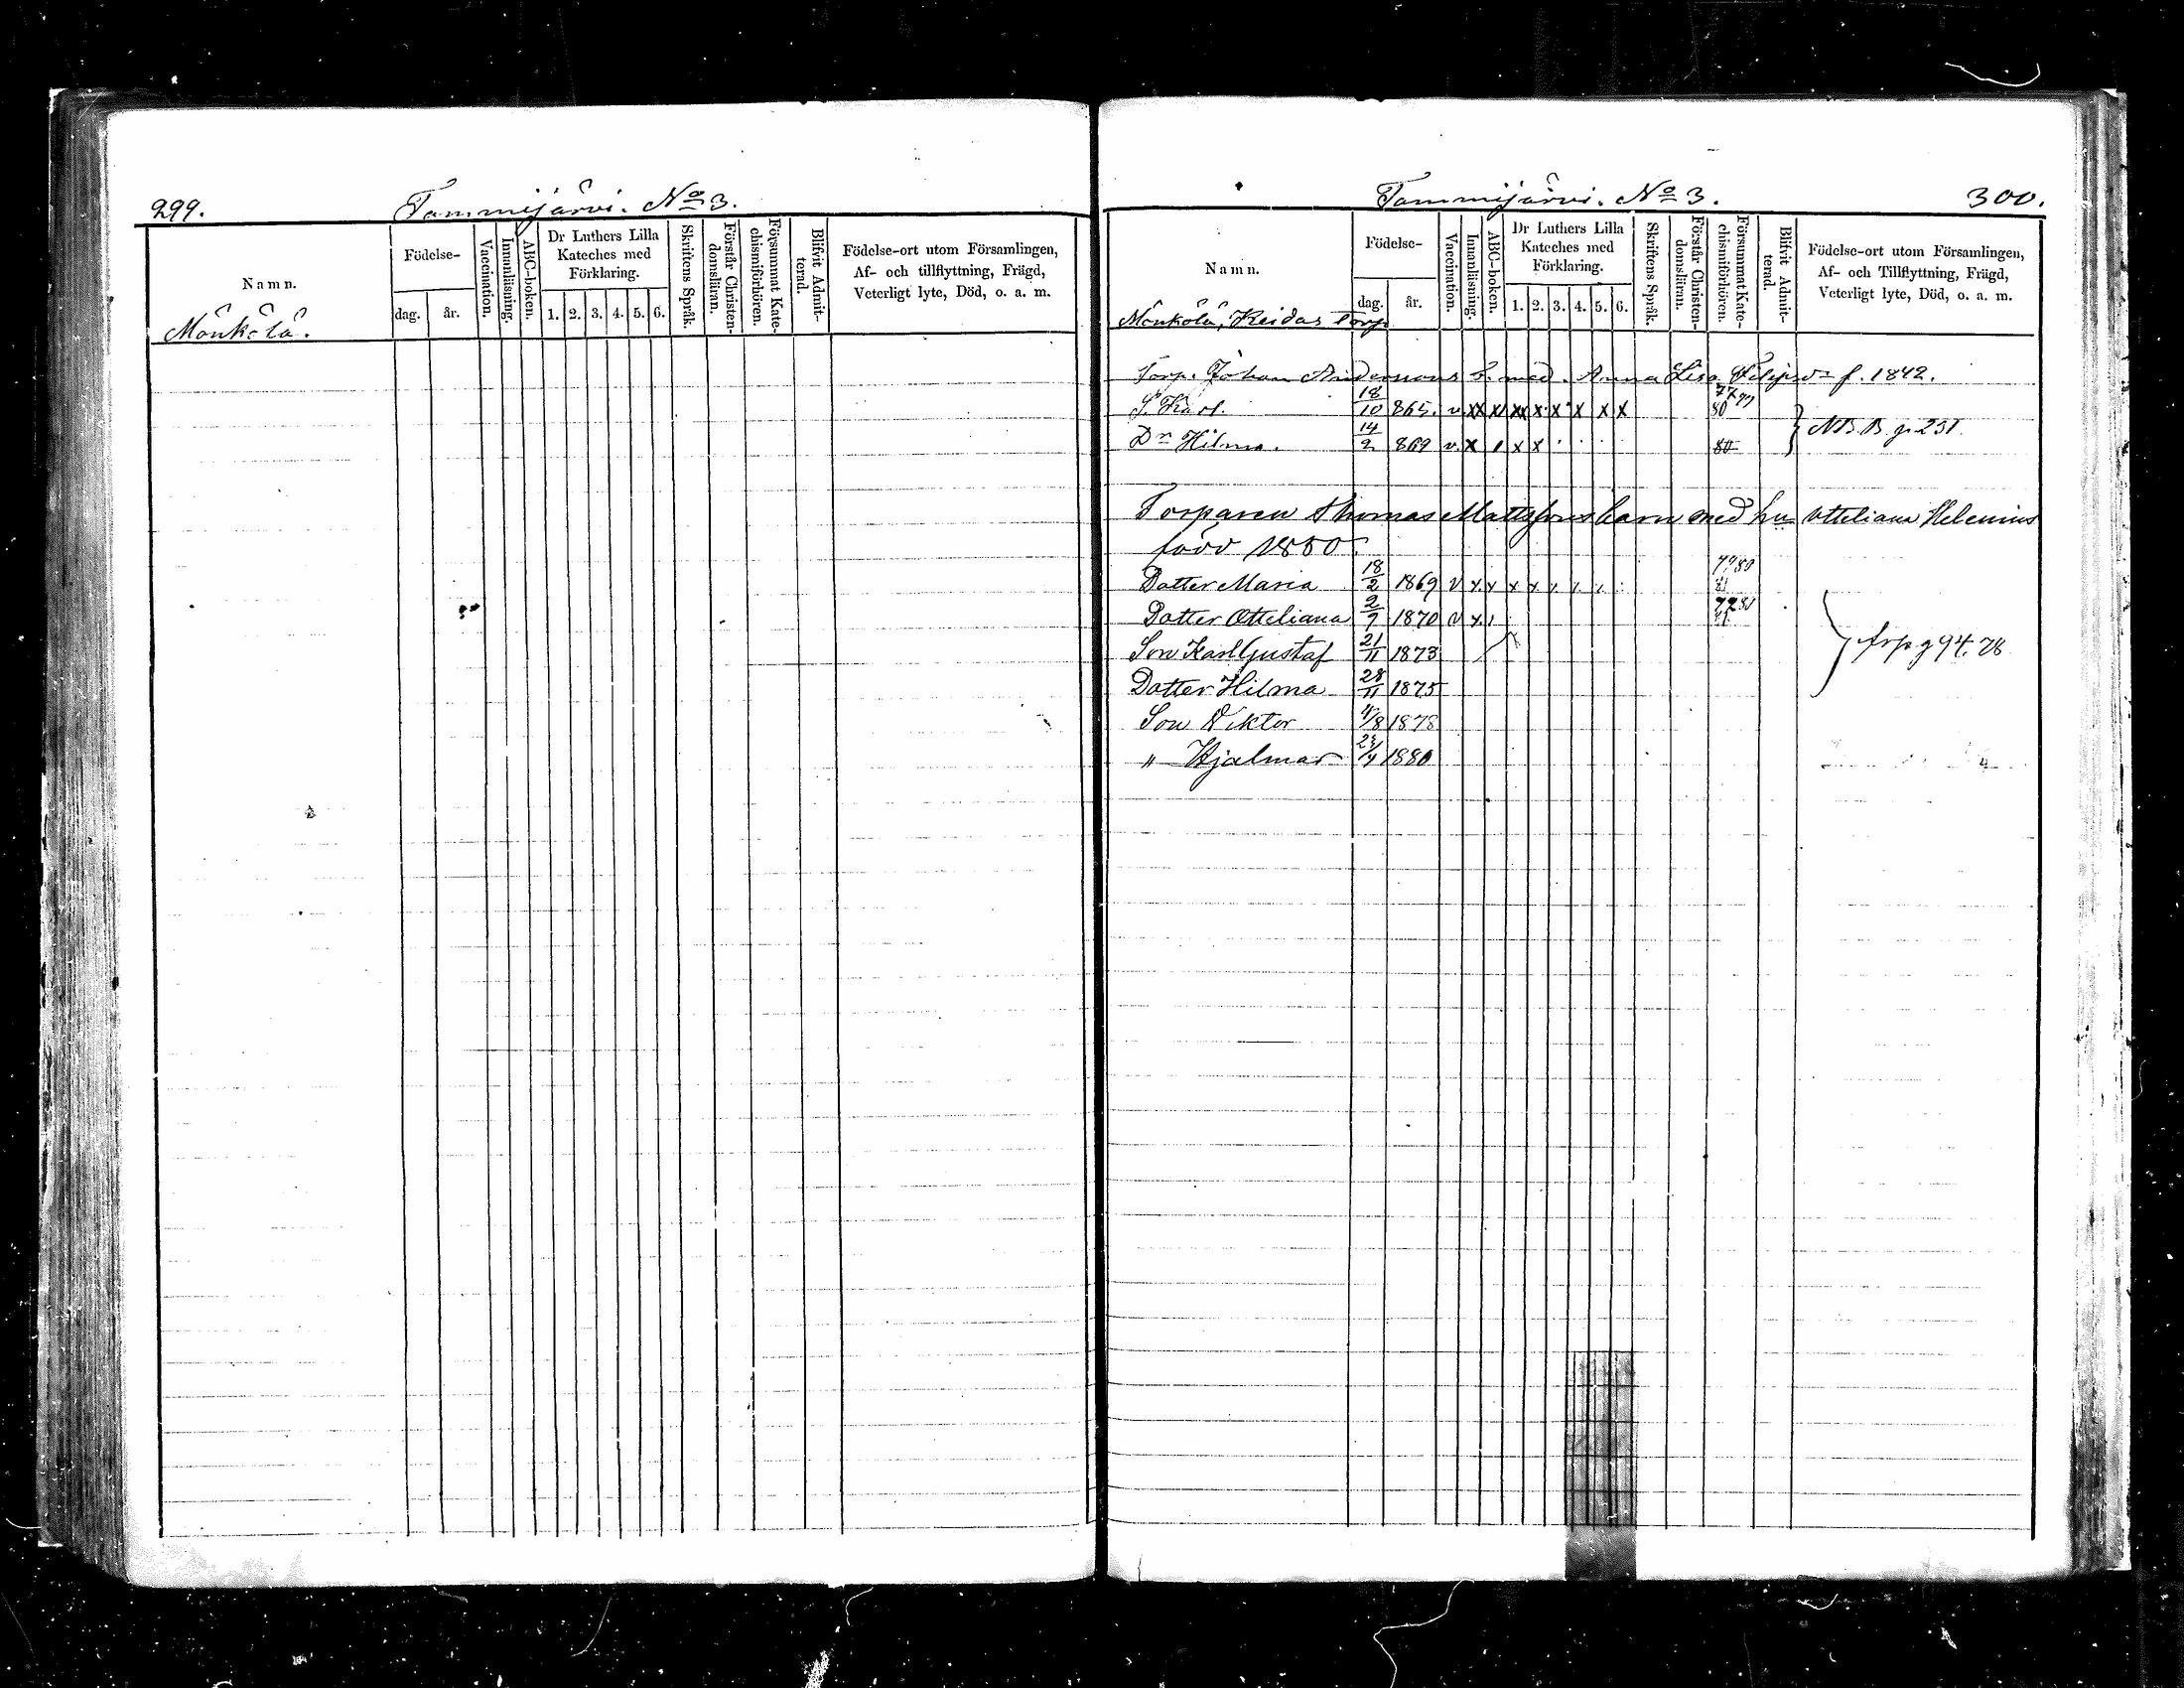 299.
Tammijärvi. No 3.
Namn.
Födelse-
dag.
år.
Vaccination.
Innanläsning.
ABC-boken.
Dr Luthers Lilla
Kateches med
Förklaring.
1. 2. 3. 4. 5. 6.
Skriftens Språk.
Förstår Christen-
domsläran.
Försummat Kate-
chismiförhören.
Blifvit Admit-
terad.
Födelse-ort utom Församlingen,
Af- och tillflyttning, Frägd,
Veterligt lyte, Död, o. a. m.
Mönkölä.
Tammijärvi. No 3.
300.
Namn.
Födelse-
dag.
år.
Vaccination.
Innanläsning.
ABC-boken.
Dr Luthers Lilla
Kateches med
Förklaring.
1. 2. 3. 4. 5. 6.
Skriftens Språk.
Förstår Christen-
domsläran.
Försummat Kate-
chismiförhören.
Blifvit Admit-
terad.
Födelse-ort utom Församlingen,
Af- och Tillflyttning, Frägd,
Veterligt lyte, Död, o. a. m.
Mönkölä, Keidas Torp
Torp. Johan Anderssons b. med. Anna Lisa Filipsdr f. 1842.
S. Karl. 18/10 865. v xx x xx x x x x x 80
Dr Hilma. 14/2 869 v. x x x 80
N B. B. p. 231.
Torparen Thomas Mattssons barn med hu Otteliana Helenius
född 1850.
Dotter Maria 18/2 1869 v x x x x 79 80 81
Dotter Otteliana 2/9 1870 v x
Son Karl Gustaf 21/11 1873
Dotter Hilma 28/11 1875
fr p g 94. 78
Son Viktor 4/8 1878
" Hjalmar 1880